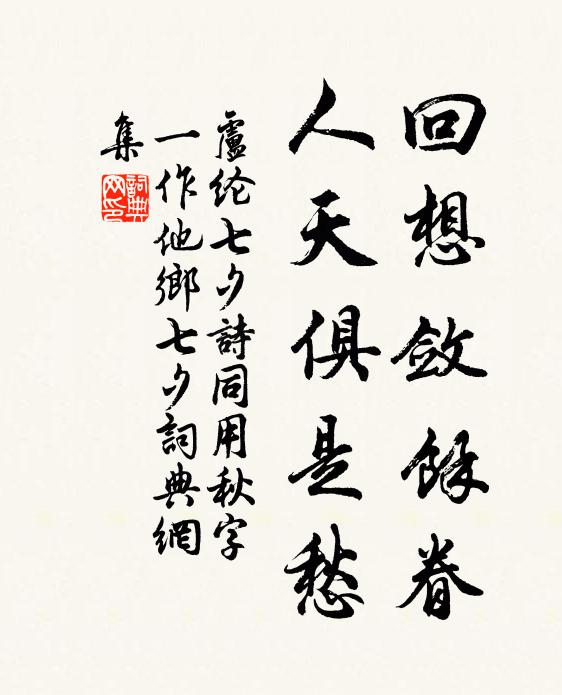 回想斂餘眷
人天俱是愁
盧纶七夕詩同用秋字
一作他鄉七夕詞典網
集
詞典网印